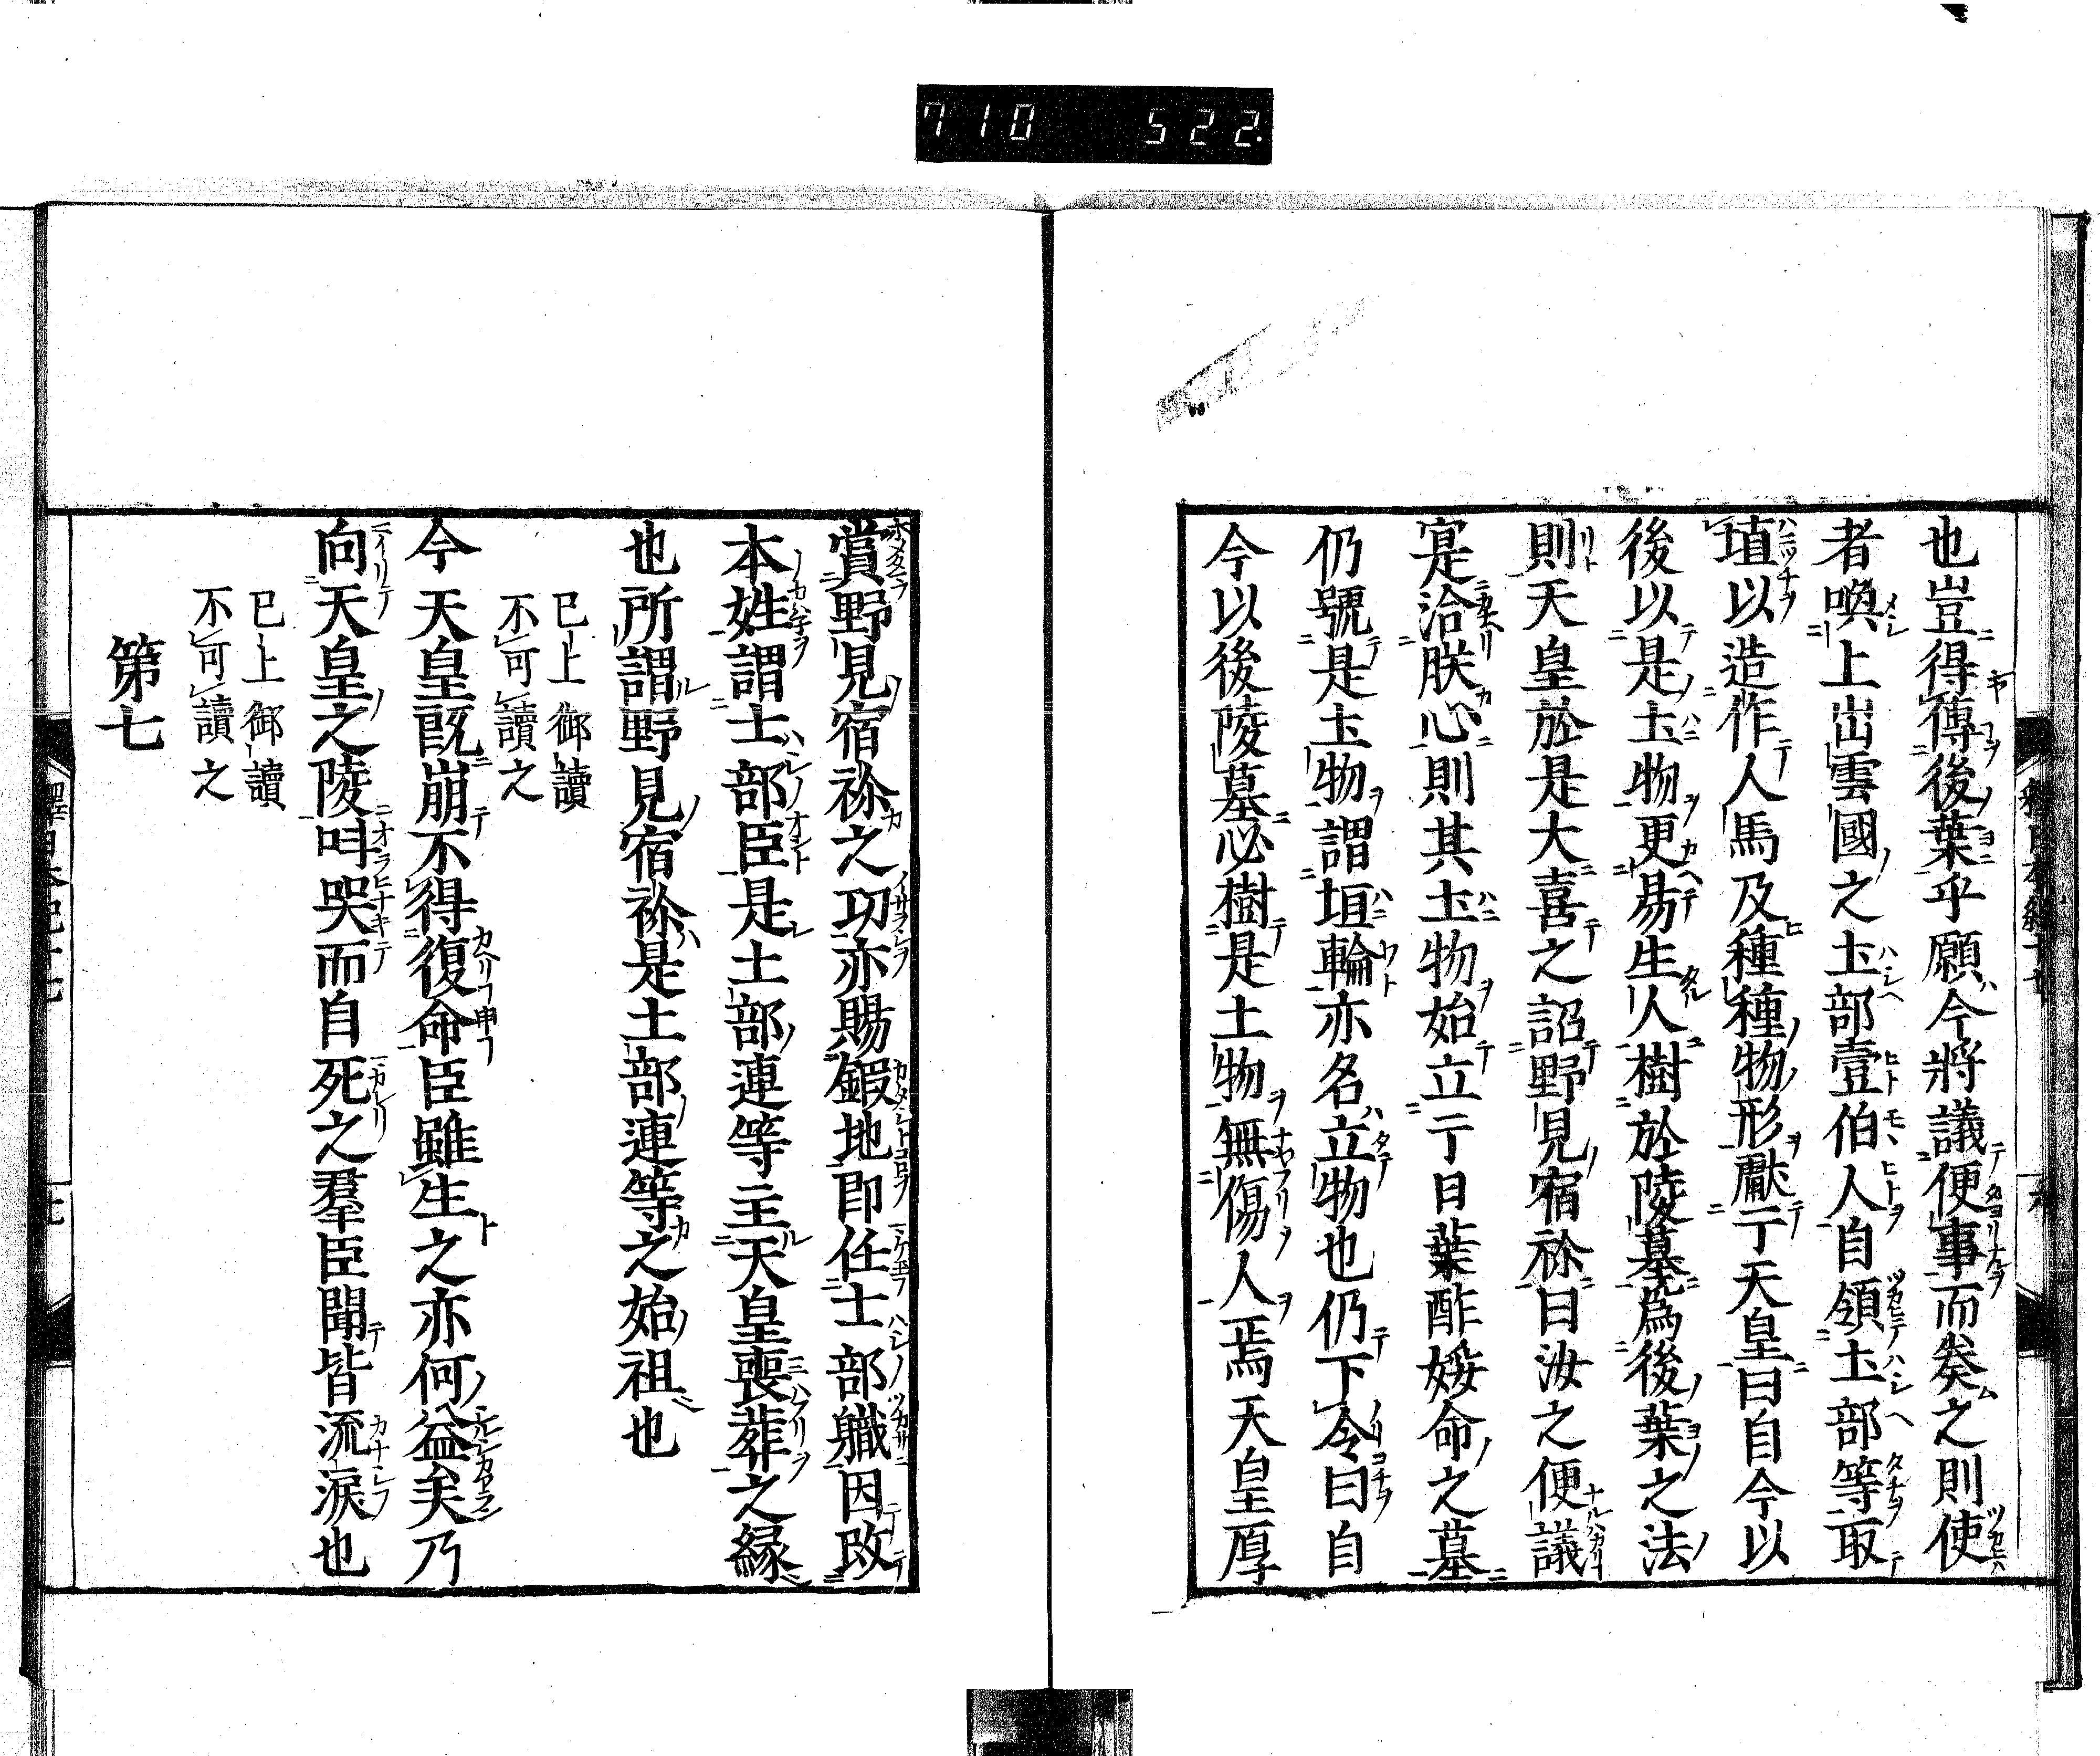 710 522
也豈得傳後葉乎願今將議便事而奏之則使
者喚上出雲國之土部壹伯人自領土部等取
埴以造作人馬及種種物形獻于天皇曰自今以
後以是土物更易生人樹於陵墓爲後葉之法
則天皇於是大喜之詔野見宿祢曰汝之便議
寔洽朕心則其土物始立于日葉酢媛命之墓
仍號是土物謂埴輪亦名立物也仍下令曰自
今以後陵墓必樹是土物無傷人焉天皇厚
賞野見宿祢之功亦賜鍜地即任土部軄因改
本姓謂土部臣是土部連等主天皇喪葬之縁
也所謂野見宿祢是土部連等之始祖也
已上御讀
不可讀之
今天皇既崩不得復命臣雖生之亦何益矣乃
向天皇之陵叫哭而自死之羣臣聞皆流涙也
已上御讀
不可讀之
第七